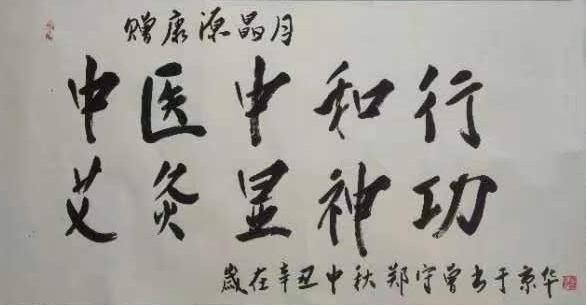 赠康源晶月
中医中和行
艾灸显神功
岁在辛丑中秋郑守曾书于京华